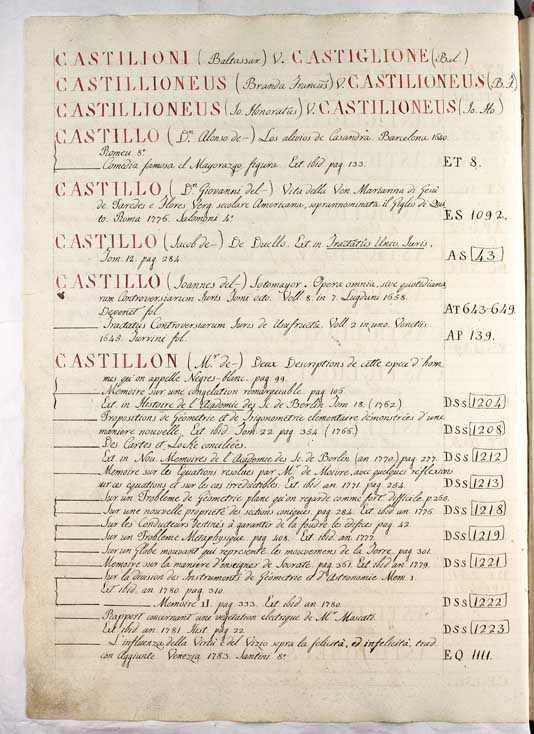 CASTILIONI (Baltassar) V. CASTIGLIONE (Bal.)
CASTILLIONEUS (Branda Francius) V. CASTILIONEUS (B. F.)
CASTILLIONEUS (Io. Honoratus) V. CASTILIONEUS (Io. Ho)
CASTILLO (Dn. Alonso de-) Los alivios de Casandra. Barcelona 1640.
Romeu 8°
Comedia famosa el Mayorazgo figura. Ext ibid pag. 133. ET 8.
CASTILLO (Dn. Giovanni del-) Vita della Ven. Marianna di Gesù
de Paredes e Flores Verg. secolare Americana, soprannominata il Giglio di Qui
to. Roma 1776. Salomoni 4° ES 1092.
CASTILLO (Iacob de-) De Duello. Ext in Tractatus Univ. Iuris.
Tom. 12. pag. 284. AS 43
CASTILLO (Ioannes del-) Sotomayor. Opera omnia, sive quotidiana
rum Controversiarum Iuris Tomi octo. Voll. 8. in 7. Lugduni 1658.
Devenet fol. AT 643-649.
Tractatus Controversiarum Iuris de Usufructu. Voll. 2 in uno. Venetiis
1648. Turrini fol. AP 139.
CASTILLON (Mr. de-) Deux Descriptions de cette espece d'hom
mes qu'on appelle Negres-blanc. pag. 99.
Mémoire sur une congelation remarquable. pag. 105.
Ext in Histoire de l'Académie des Sc. de Berlin Tom. 18. (1762) DSS 1204
Propositions de Géometrie et de Trigonometrie elementaire démontrées d'une
maniere nouvelle. Ext ibid. Tom. 22. pag. 354. (1766) DSS 1208
Des Cartes et Locke conciliées.
Ext in Nou. Memoires de l'Académie des Sc. de Berlin (an. 1770) pag. 277. DSS 1212
Memoire sur les Equations resolues par Mr. de Moivre, avec quelques reflexions
sur ces equations et sur les cas irreductibles. Ext ibid an. 1771. pag. 254. DSS 1213
Sur un Probléme de Géometrie plane qu'on regarde comme fort difficile. p. 258.
Sur une nouvelle proprieté des sections coniques. pag. 284. Ext ibid an. 1776. DSS 1218
Sur les Conducteurs destinés à garantir de la foudre les edifices pag. 42.
Sur un Probléme Metaphysique. pag. 408. Ext ibid an. 1777. DSS 1219
Sur un Globe mouvant qui represente les mouvemens de la Terre. pag. 301.
Memoire sur la maniere d'enseigner de Socrate. pag. 361. Ext ibid an. 1779. DSS 1221
Sur la division des Instruments de Géometrie et d'Astronomie Mem. 1.
Ext ibid an. 1780. pag. 310.
Memoire II. pag. 333. Ext ibid an. 1780. DSS 1222
Rapport concernant une vegetation electrique de Mr. Moscati.
Ext ibid an. 1781. Hist. pag. 22. DSS 1223
L'influenza della Virtù e del Vizio sopra la felicità, ed infelicità, trad.
con Aggiunte Venezia 1783. Santini 8° EQ 1111.